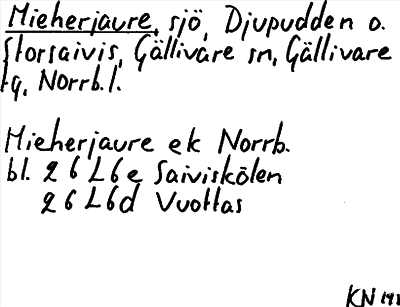 Mieherjaure, sjö, Djupudden o.
Storsaivis, Gällivare sn, Gällivare
tg, Norrb. l.
Mieherjaure ek Norrb.
bl. 26 L6e Saiviskölen
26 L6d Vuottas
KN